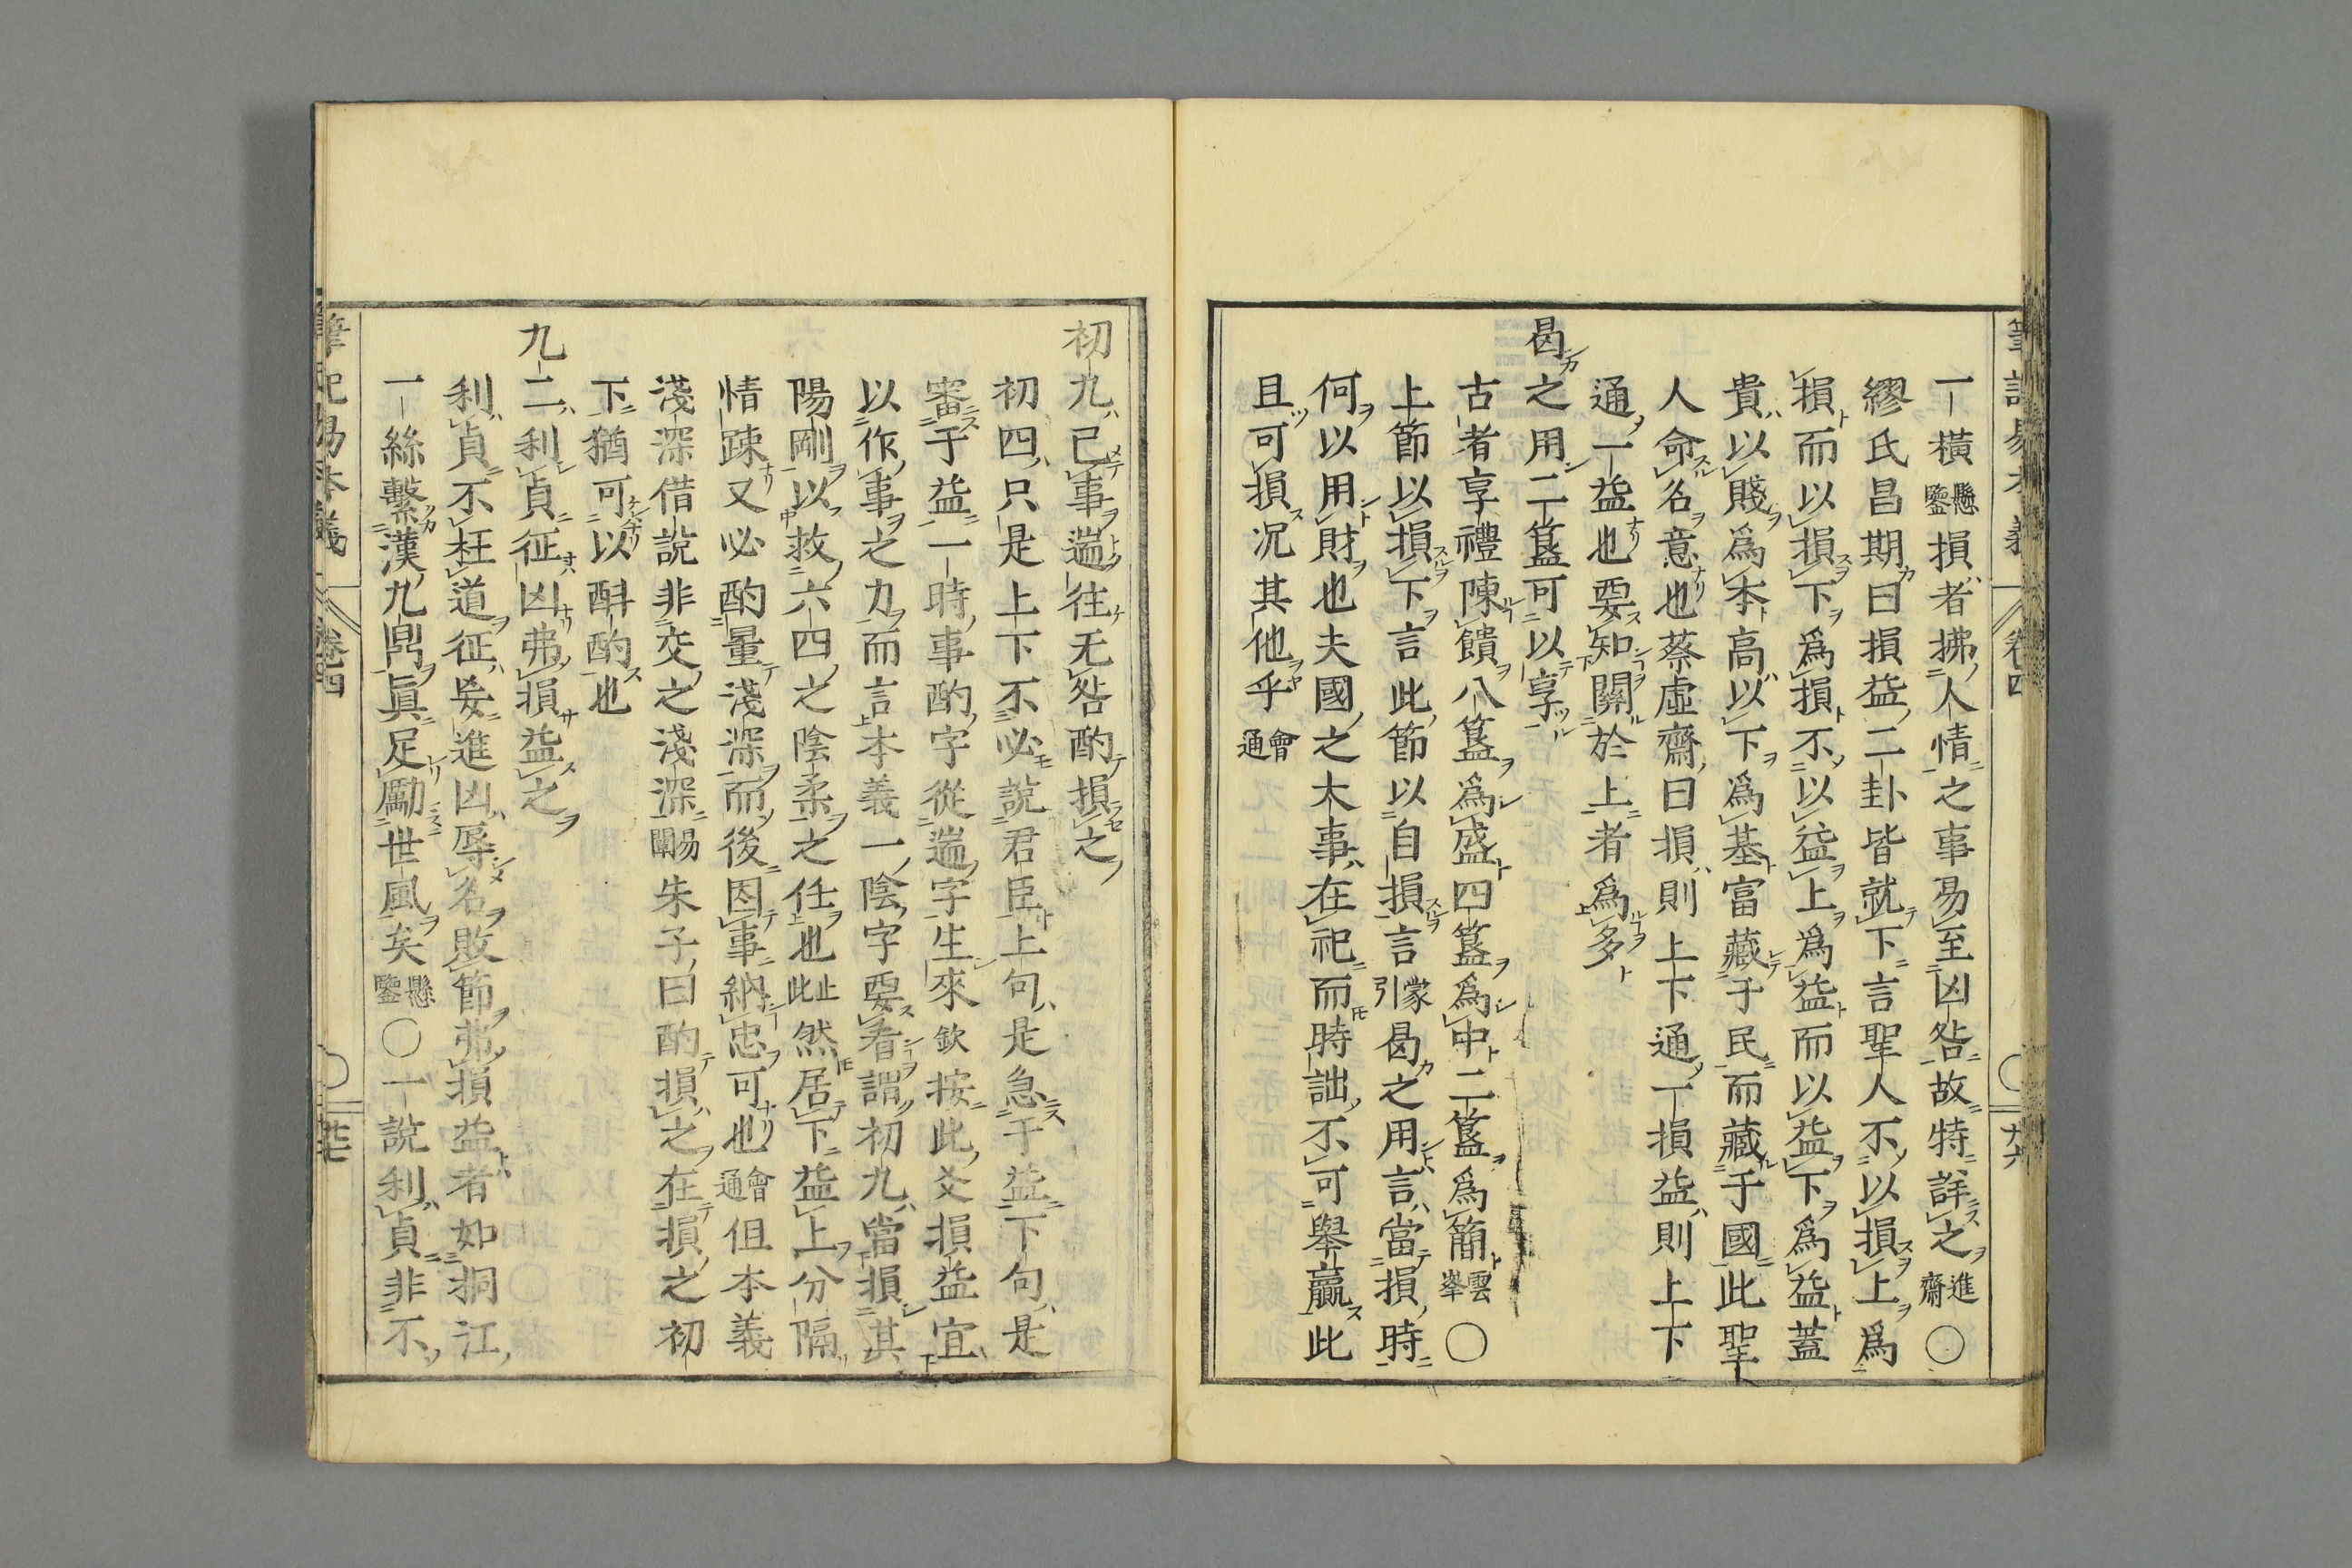 筆記易本義 卷四 廿六
一橫懸鑒損者拂人情之事易至凶咎故特詳之進齋〇
繆氏昌期曰損益二卦皆就下言聖人不以損上爲
損而以損下爲損不以益上爲益而以益下爲益蓋
貴以賤爲本高以下爲基富藏于民而藏于國此聖
人命名意也蔡虛齋曰損則上下通一損益則上下
通一益也要知關於上者爲多
曷之用二簋可以享
古者享禮陳饋八簋爲盛四簋爲中二簋爲簡雲峯〇
上節以損下言此節以自損言蒙引曷之用言當損時
何以用財也夫國之大事在祀而時詘不可舉贏此
且可損況其他乎會通
初九已事遄往无咎酌損之
初四只是上下不必說君臣上句是急于益下句是
審于益一時事酌字從遄字生來欽按此爻損益宜
以作事之力而言本義一陰字要看謂初九當損其
陽剛以救六四之陰柔之任也止此然居下益上分隔
情疎又必酌量淺深而後因事納忠可也會通但本義
淺深借說非交之淺深易闡朱子曰酌損之在損之初
下猶可以斟酌也
九二利貞征凶弗損益之
利貞不枉道征妄進凶辱名敗節弗損益者如桐江
一絲繫漢九鼎眞足勵世風矣懸鑒〇一說利貞非不
筆記易本義 卷四 廿七